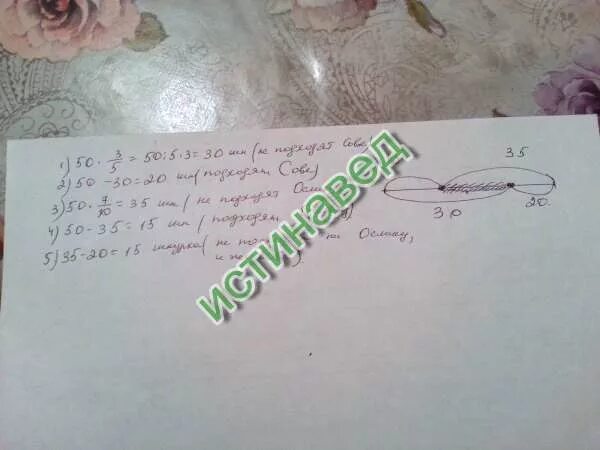 1) 50 · 3/5 = 50:5·3 = 30 шт (не подходят Сове)
2) 50 - 30 = 20 шт (подходят Сове)
3) 50 · 7/10 = 35 шт (не подходят
4) 50 - 35 = 15 шт (подходят
5) 35 - 20 = 15 шкурка (не Ослику,
и не ).
35
30
20
истинавед